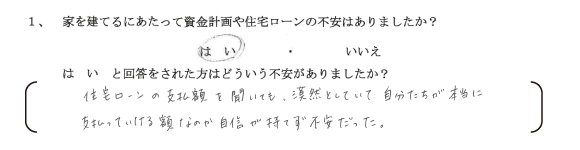 1、 家を建てるにあたって資金計画や住宅ローンの不安はありましたか？
は い ・ いいえ
は い と回答をされた方はどういう不安がありましたか？
住宅ローンの支払額を聞いても、漠然としていて自分たちが本当に
支払っていける額なのか自信が持てず不安だった。